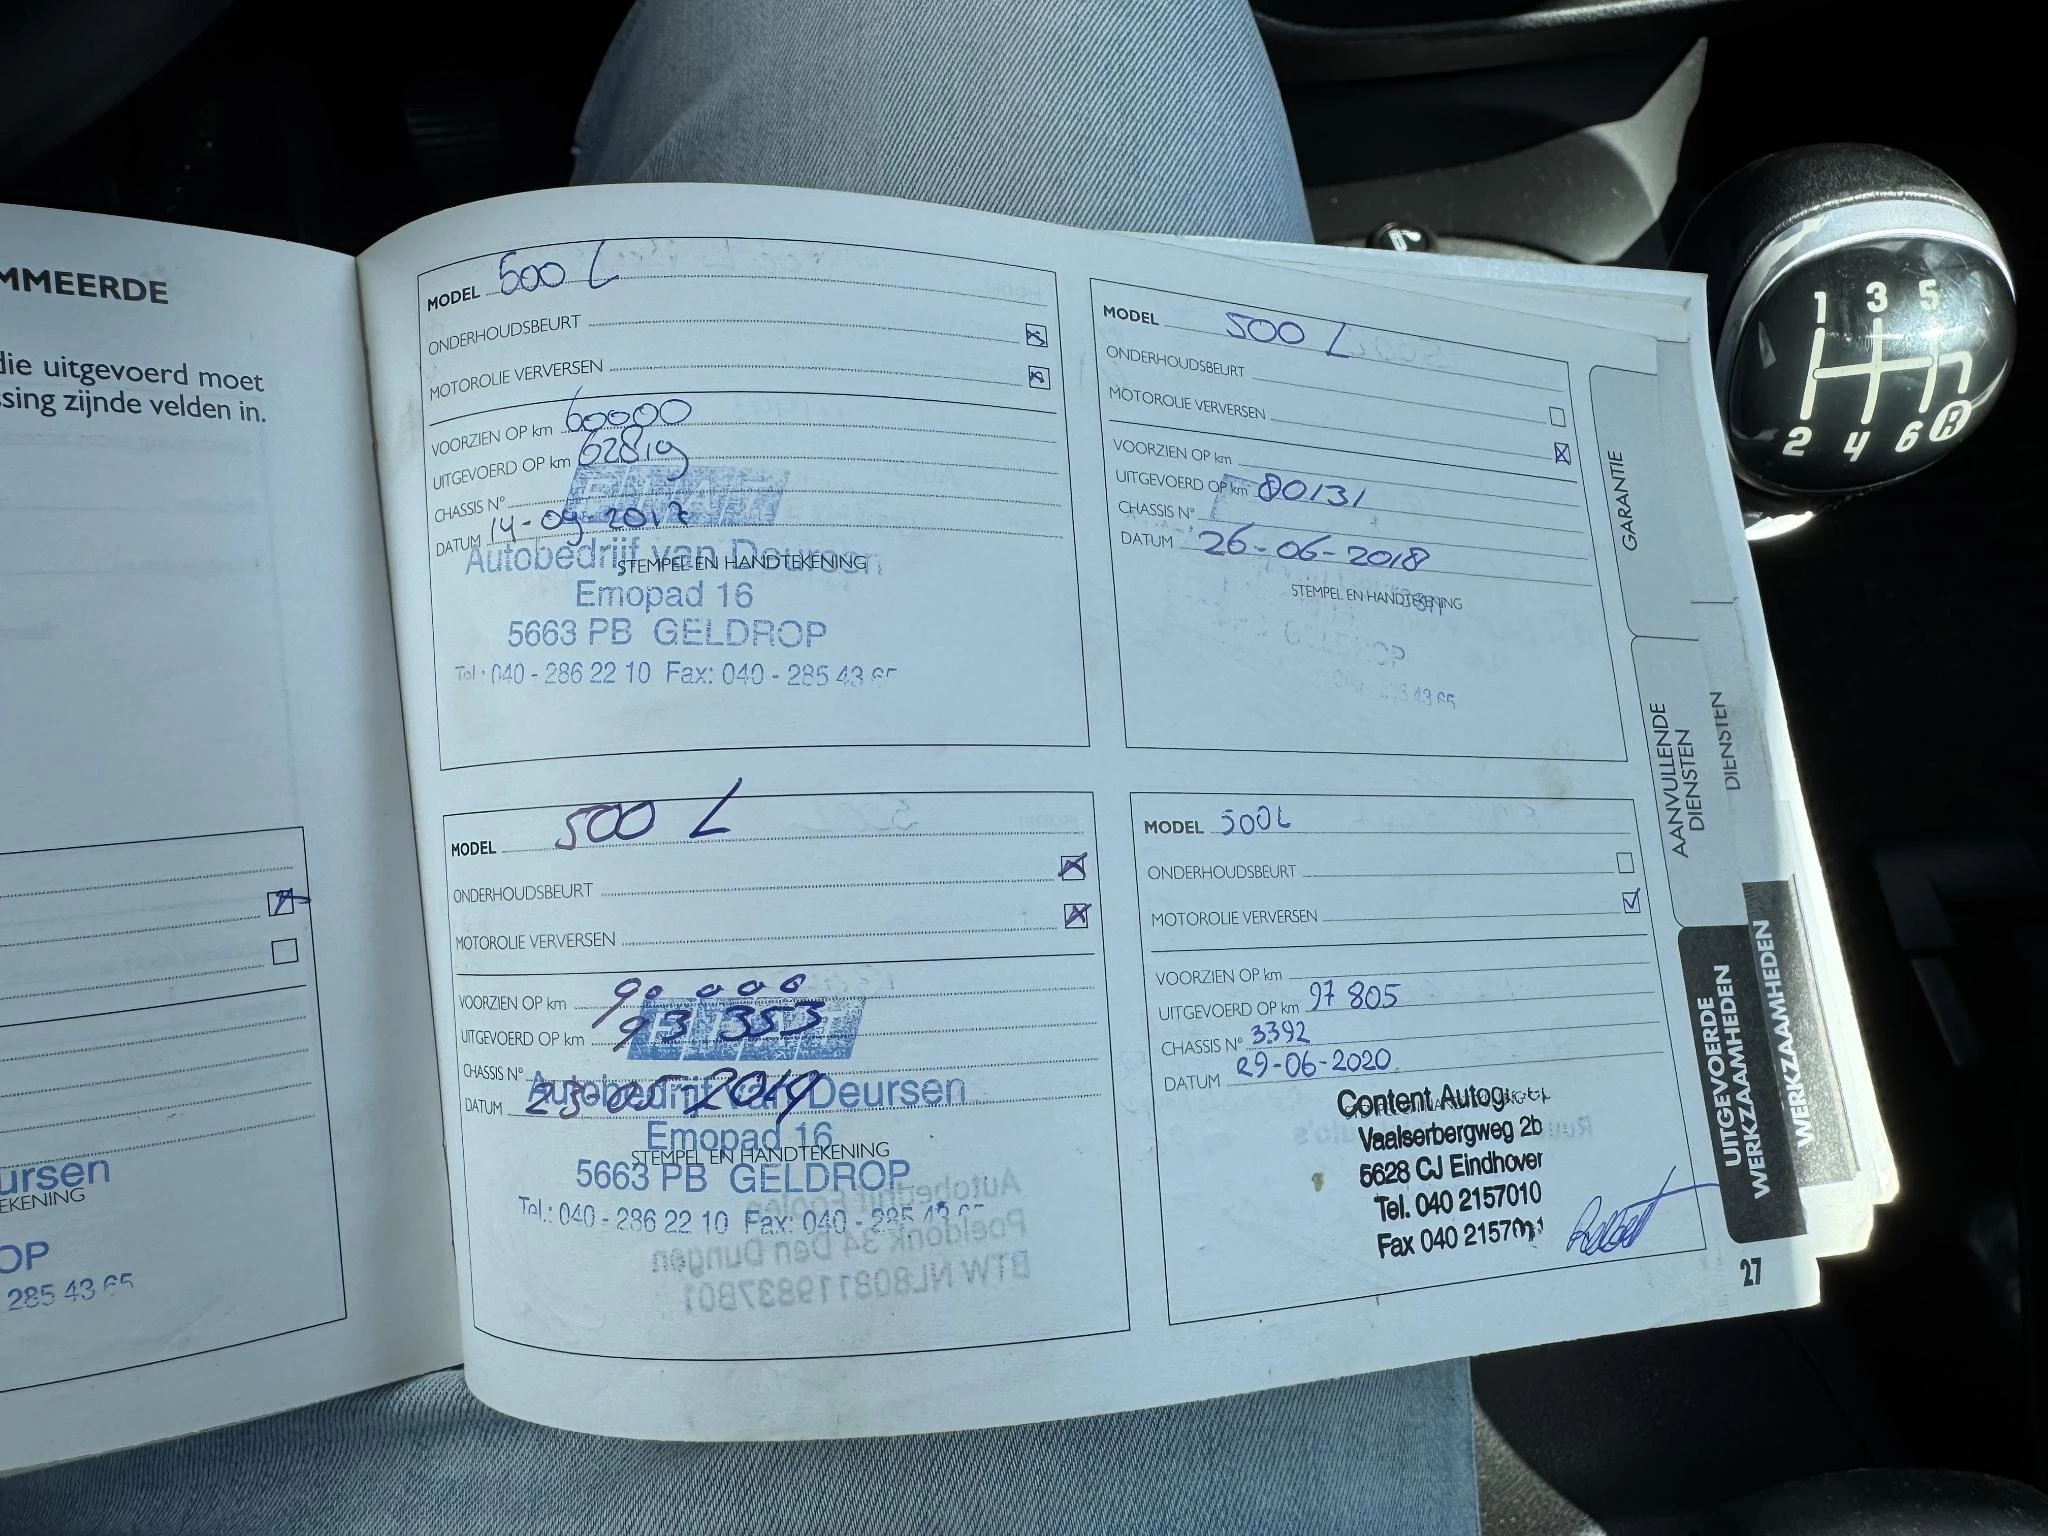 MMEERDE
die uitgevoerd moet
ssing zijnde velden in.
ursen
EKENING
OP
285 43 65
MODEL 500 L
ONDERHOUDSBEURT
MOTOROLIE VERVERSEN
VOORZIEN OP km 60000
UITGEVOERD OP km 62819
CHASSIS N°
DATUM 14-09-2017
Autobedrijf van Deursen
STEMPEL EN HANDTEKENING
Emopad 16
5663 PB GELDROP
Tel.: 040 - 286 22 10 Fax: 040 - 285 43 65
MODEL 500 L
ONDERHOUDSBEURT
MOTOROLIE VERVERSEN
VOORZIEN OP km
UITGEVOERD OP km 80131
CHASSIS N°
DATUM 26-06-2018
STEMPEL EN HANDTEKENING
GELDROP
285 43 65
MODEL 500 L
ONDERHOUDSBEURT
MOTOROLIE VERVERSEN
VOORZIEN OP km 90.000
UITGEVOERD OP km 93 353
CHASSIS N°
DATUM 23-05-2019
Autobedrijf van Deursen
Emopad 16
STEMPEL EN HANDTEKENING
5663 PB GELDROP
Tel.: 040 - 286 22 10 Fax: 040 - 285 43 65
MODEL 500L
ONDERHOUDSBEURT
MOTOROLIE VERVERSEN
VOORZIEN OP km
UITGEVOERD OP km 97 805
CHASSIS N° 3392
DATUM 29-06-2020
Content Autogroep
Vaalserbergweg 2b
5628 CJ Eindhoven
Tel. 040 2157010
Fax 040 2157011
GARANTIE
AANVULLENDE
DIENSTEN
DIENSTEN
UITGEVOERDE
WERKZAAMHEDEN
WERKZAAMHEDEN
27
1 3 5
2 4 6 R